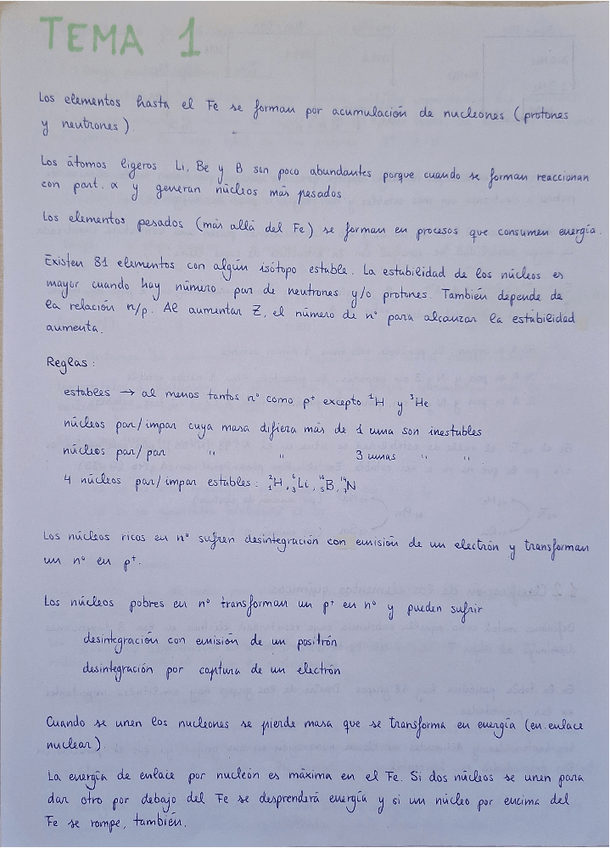 TEMA 1
Los elementos hasta el Fe se forman por acumulación de nucleones (protones
y neutrones)
Los átomos ligeros Li, Be y B son poco abundantes porque cuando se forman reaccionan
con part. α y generan núcleos más pesados
Los elementos pesados (más allá del Fe) se forman en procesos que consumen energía.
Existen 81 elementos con algún isótopo estable. La estabilidad de los núcleos es
mayor cuando hay número par de neutrones y/o protones. También depende de
la relación n/p. Al aumentar Z, el número de n° para alcanzar la estabilidad
aumenta.
Reglas:
estables → al menos tantos n° como p⁺ excepto ¹H y ³He
núcleos par/impar cuya masa difiera más de 1 uma son inestables
núcleos par/par " " 3 umas " "
4 núcleos par/impar estables: ²₁H, ⁶₃Li, ¹⁰₅B, ¹⁴₇N
Los núcleos ricos en n° sufren desintegración con emisión de un electrón y transforman
un n° en p⁺.
Los núcleos pobres en n° transforman un p⁺ en n° y pueden sufrir
desintegración con emisión de un positrón
desintegración por captura de un electrón
Cuando se unen los nucleones se pierde masa que se transforma en energía (en. enlace
nuclear).
La energía de enlace por nucleón es máxima en el Fe. Si dos núcleos se unen para
dar otro por debajo del Fe se desprenderá energía y si un núcleo por encima del
Fe se rompe, también.